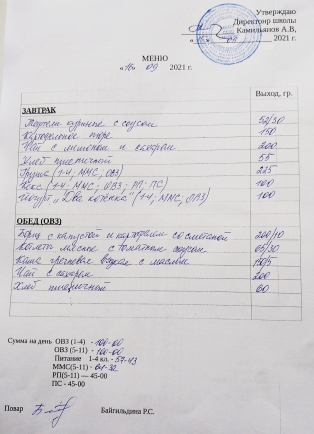 Утверждаю
Директор школы
Камильянов А.В,
2021 г.
МЕНЮ
09 2021 г.
Выход, гр.
ЗАВТРАК
куриные с соусом 52/30
Картофельное пюре 150
Чай с лимоном и сахаром 200
Хлеб пшеничный 55
Груша (1-4; ММС; ОВЗ) 225
Кекс (1-4; ММС; ОВЗ; РП; ПС) 100
Йогурт „Два котёнка" (1-4; ММС, 100
ОБЕД (ОВЗ)
Борщ с капустой и картофелем со сметаной 200/10
Котлеты мясные с томатным соусом 65/30
Каша гречневая вязкая с маслом 150/5
Чай с сахаром 200
Хлеб пшеничный 60
Сумма на день ОВЗ (1-4) - 100-00
ОВЗ (5-11) - 100-00
Питание 1-4 кл. - 57-43
ММС(5-11) -
РП(5-11) — 45-00
ПС - 45-00
Повар Байгильдина Р.С.